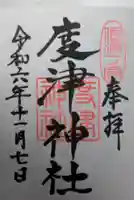 奉拝
度津神社
令和六年十一月七日